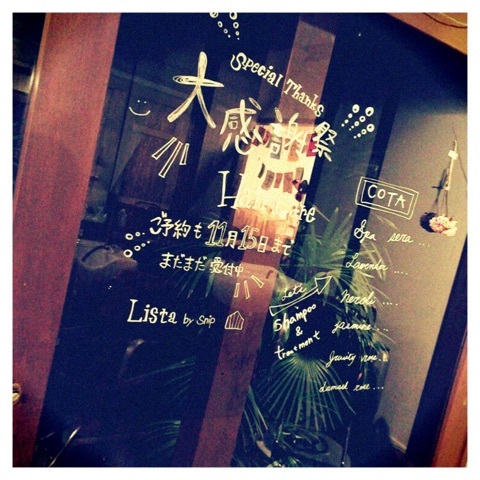 Special Thanks
大感謝祭
Hair Care
ご予約も11月15日まで
まだまだ受付中
Lista by Snip
COTA
Spa sera...
Lavender ....
Neroli ....
Jasmine...
damask rose...
Let's
Shampoo
&
treatment